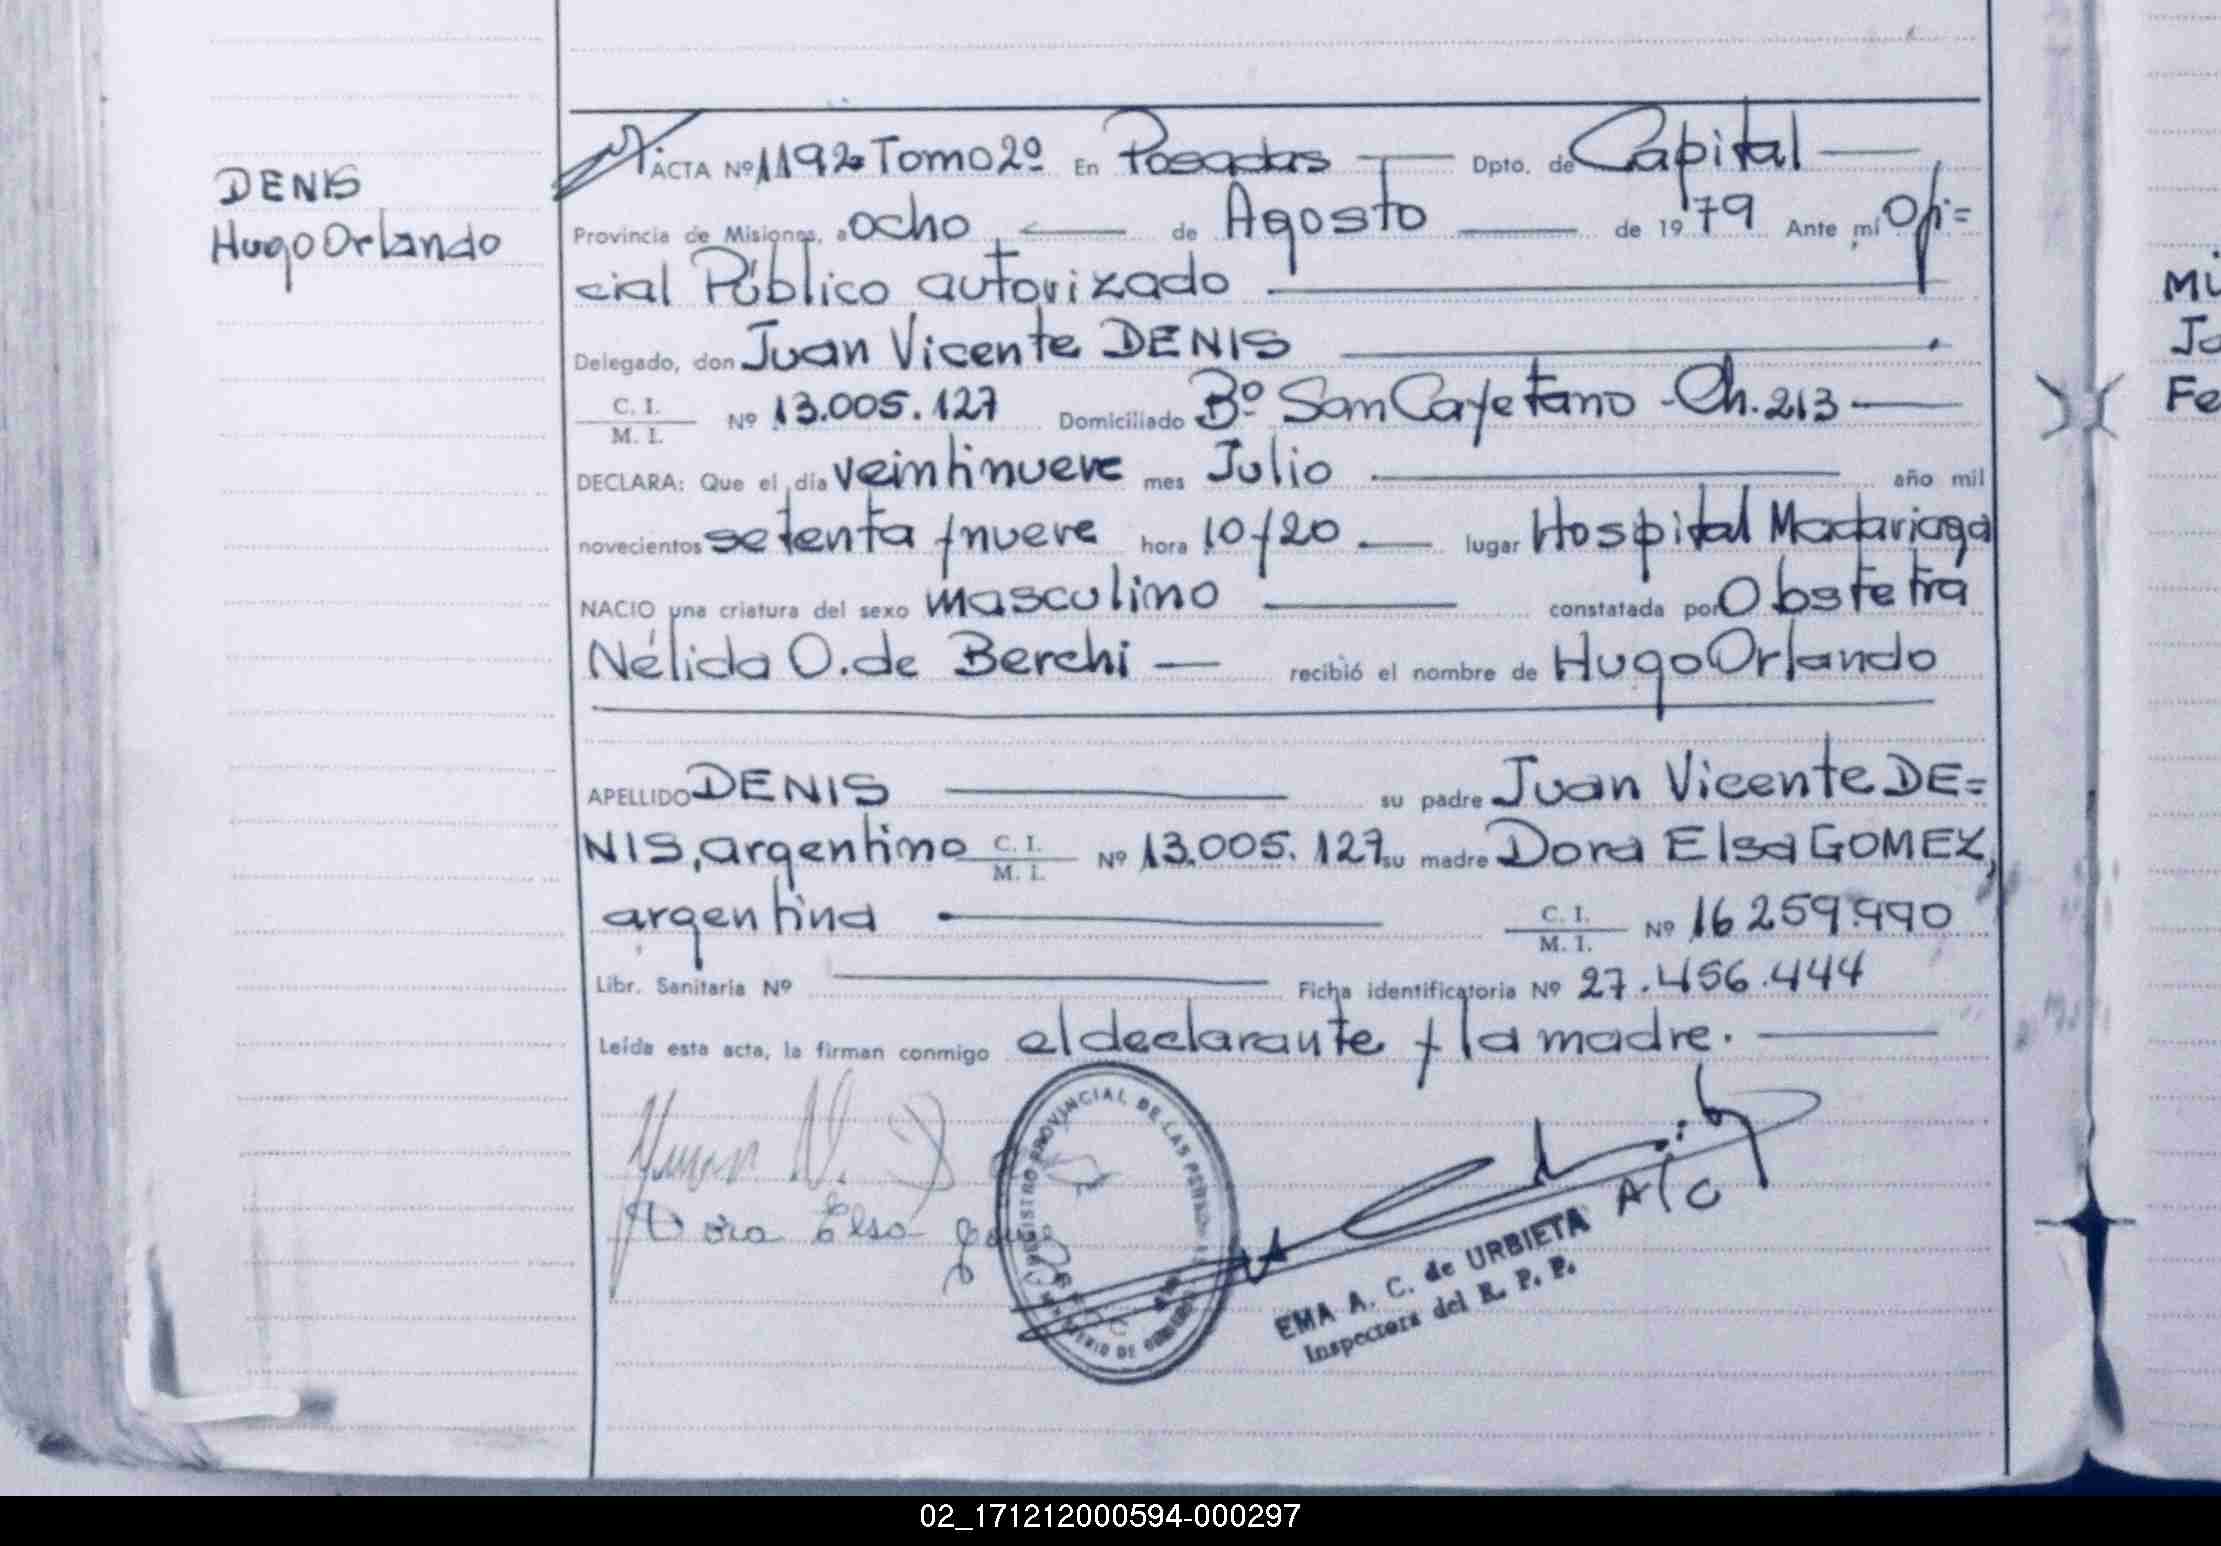 DENIS
Hugo Orlando
ACTA Nº 1192 Tomo 2º En Posadas Dpto. de Capital
Provincia de Misiones, a ocho de Agosto de 1979 Ante mí Ofi=
cial Público autorizado
Delegado, don Juan Vicente DENIS
C. I.
M. I. Nº 13.005.127 Domiciliado Bº San Cayetano - Ch. 213
DECLARA: Que el día veintinueve mes Julio año mil
novecientos setenta y nueve hora 10 y 20 lugar Hospital Madariaga
NACIO una criatura del sexo masculino constatada por Obstetra
Nélida O. de Berchi recibió el nombre de Hugo Orlando
APELLIDO DENIS su padre Juan Vicente DE=
NIS, argentino C. I. M. I. Nº 13.005.127 su madre Dora Elsa GOMEZ,
argentina C. I. M. I. Nº 16259.990
Libr. Sanitaria Nº Ficha identificatoria Nº 27.456.444
Leída esta acta, la firman conmigo el declarante y la madre.
Juan V. D
Dora Elsa
REGISTRO PROVINCIAL DE LAS PERSONAS
MINISTERIO DE GOBIERNO
A/C
EMA A. C. de URBIETA
Inspectora del R. P. P.
Mu
Jo
Fe
02_171212000594-000297